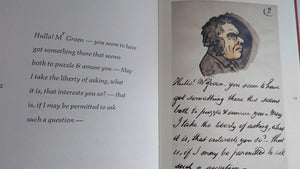 Hullo! Mr Green — you seem to have
got something there that seems
both to puzzle & amuse you — May
I take the liberty of asking, what
it is, that interests you so? — that
is, if I may be permitted to ask
such a question —
2
Hullo! Mr Green, you seem to have
got something there this seems
both to puzzle & amuse you — May
I take the liberty of asking, what
it is, that interests you so? — that
is, if I may be permitted to ask
such a question —